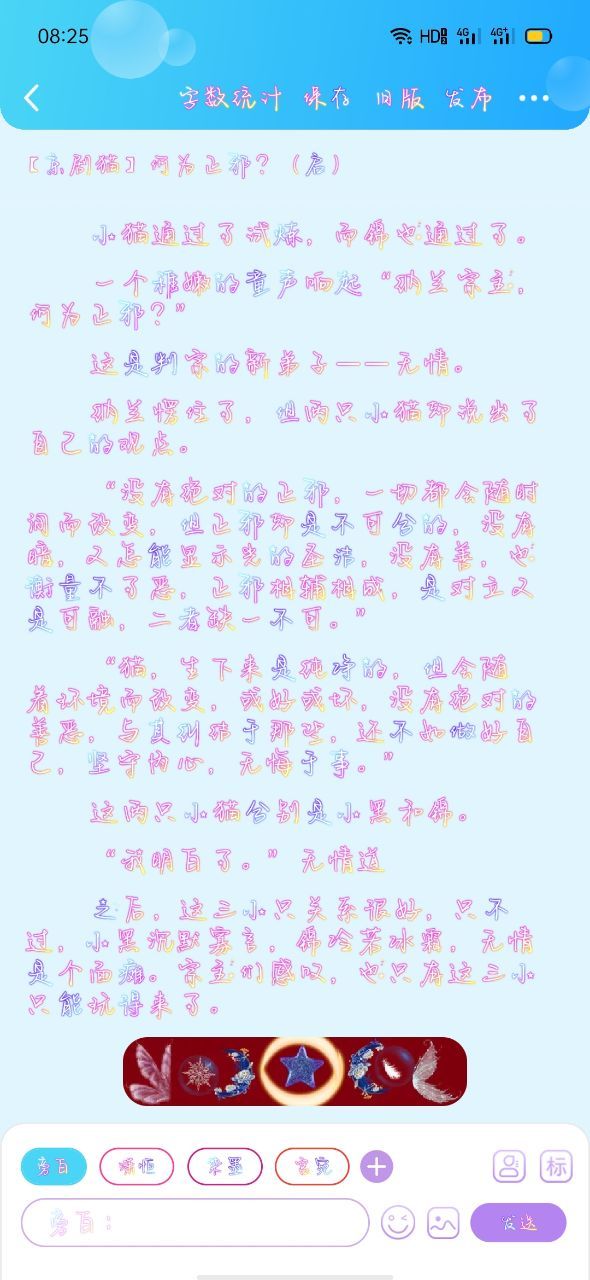 08:25
HD 4G 4G+
字数统计 保存 旧版 发布
【京剧猫】何为正邪？（启）
小猫通过了试炼，而锦也通过了。
一个稚嫩的童声响起“纳兰宗主，
何为正邪？”
这是判宗的新弟子——无情。
纳兰愣住了，但两只小猫却说出了
自己的观点。
“没有绝对的正邪，一切都会随时
间而改变，但正邪却是不可分的，没有
暗，又怎能显示光的圣洁，没有善，也
衡量不了恶，正邪相辅相成，是对立又
是可融，二者缺一不可。”
“猫，生下来是纯净的，但会随
着环境而改变，或好或坏，没有绝对的
善恶，与其纠结于那些，还不如做好自
己，坚守内心，无悔于事。”
这两只小猫分别是小黑和锦。
“我明白了。”无情道
之后，这三小只关系很好，只不
过，小黑沉默寡言，锦冷若冰霜，无情
是个面瘫。宗主们感叹，也只有这三小
只能玩得来了。
旁白
标
旁白：
发送